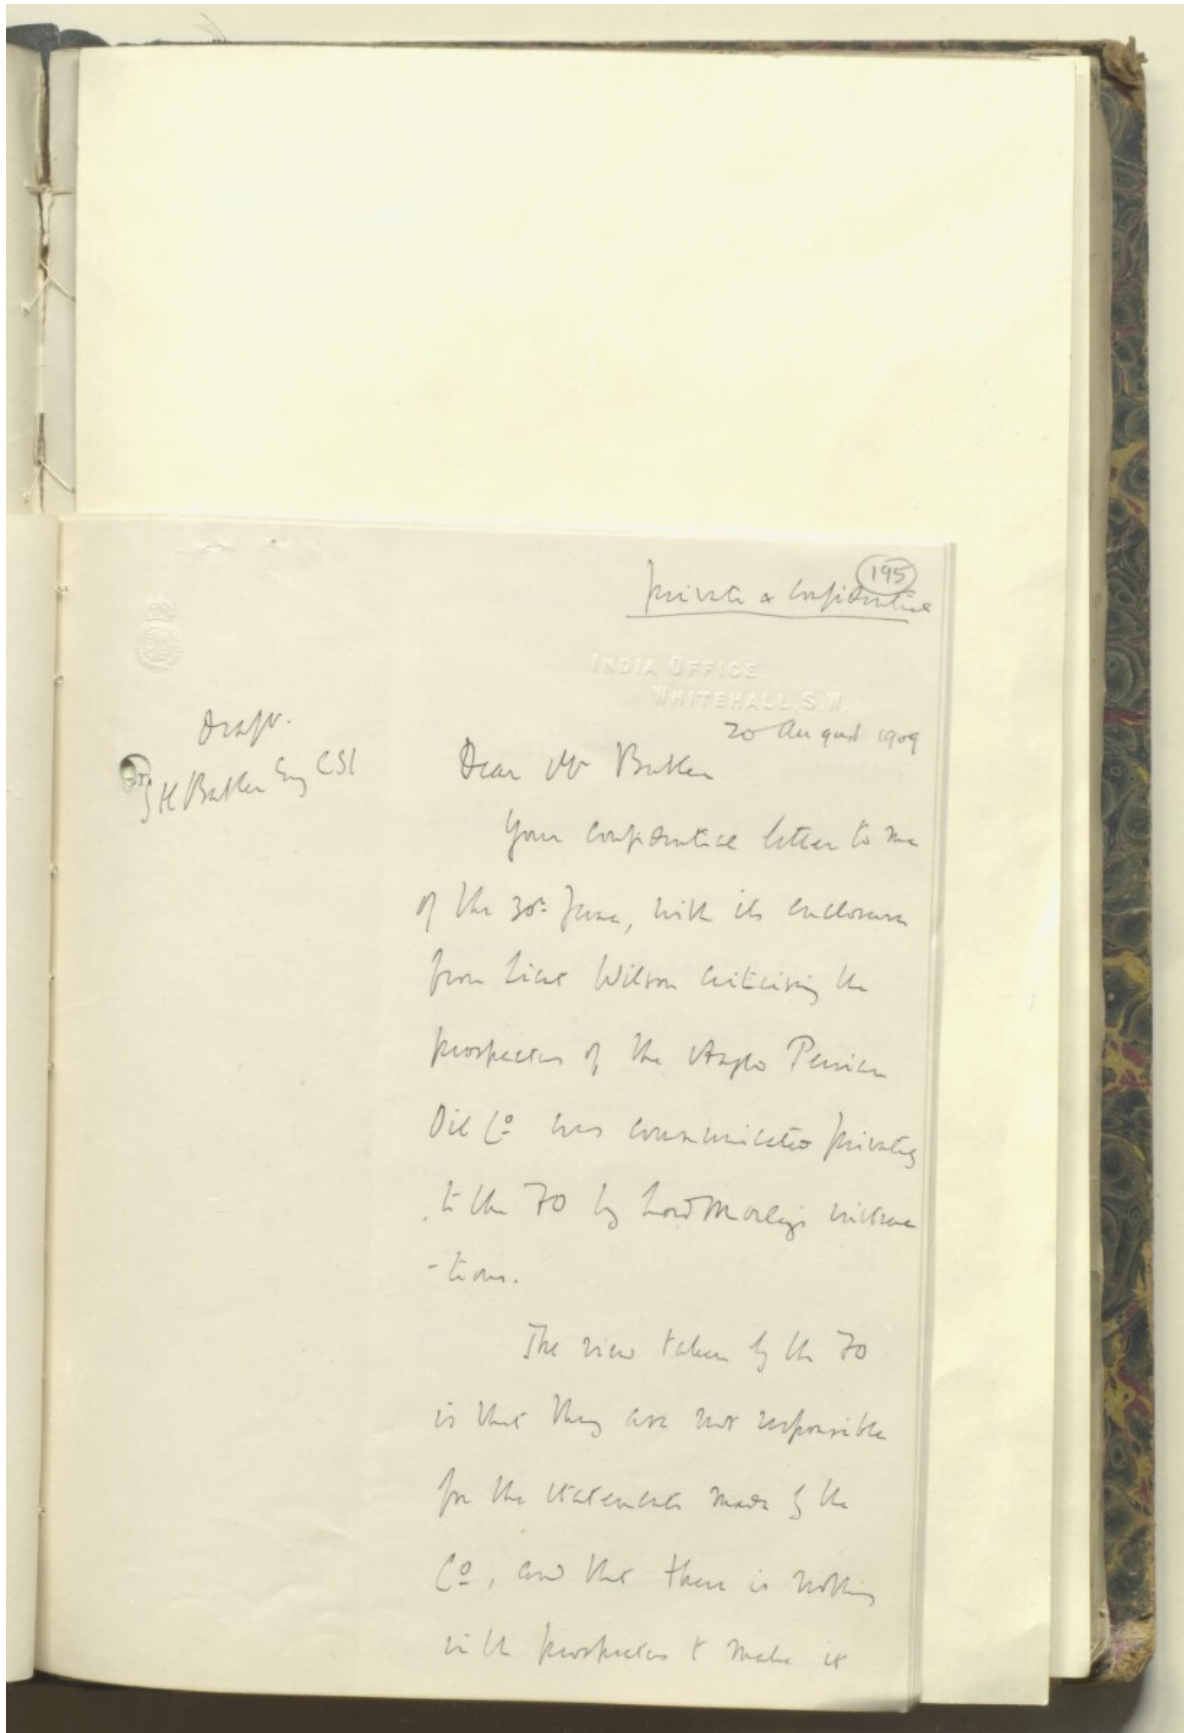 195
Private & Confidential
INDIA OFFICE,
WHITEHALL S.W.
20 August 1909
Draft.
S H Butler Esq CSI
Dear Mr Butler
Your confidential letter to me
of the 30th June, with its enclosure
from Lieut Wilson criticising the
prospectus of the Anglo Persian
Oil Co was communicated privately
to the FO by Lord Morley's instruc
-tions.
The view taken by the FO
is that they are not responsible
for the statements made by the
Co, and that there is nothing
in the prospectus to make it